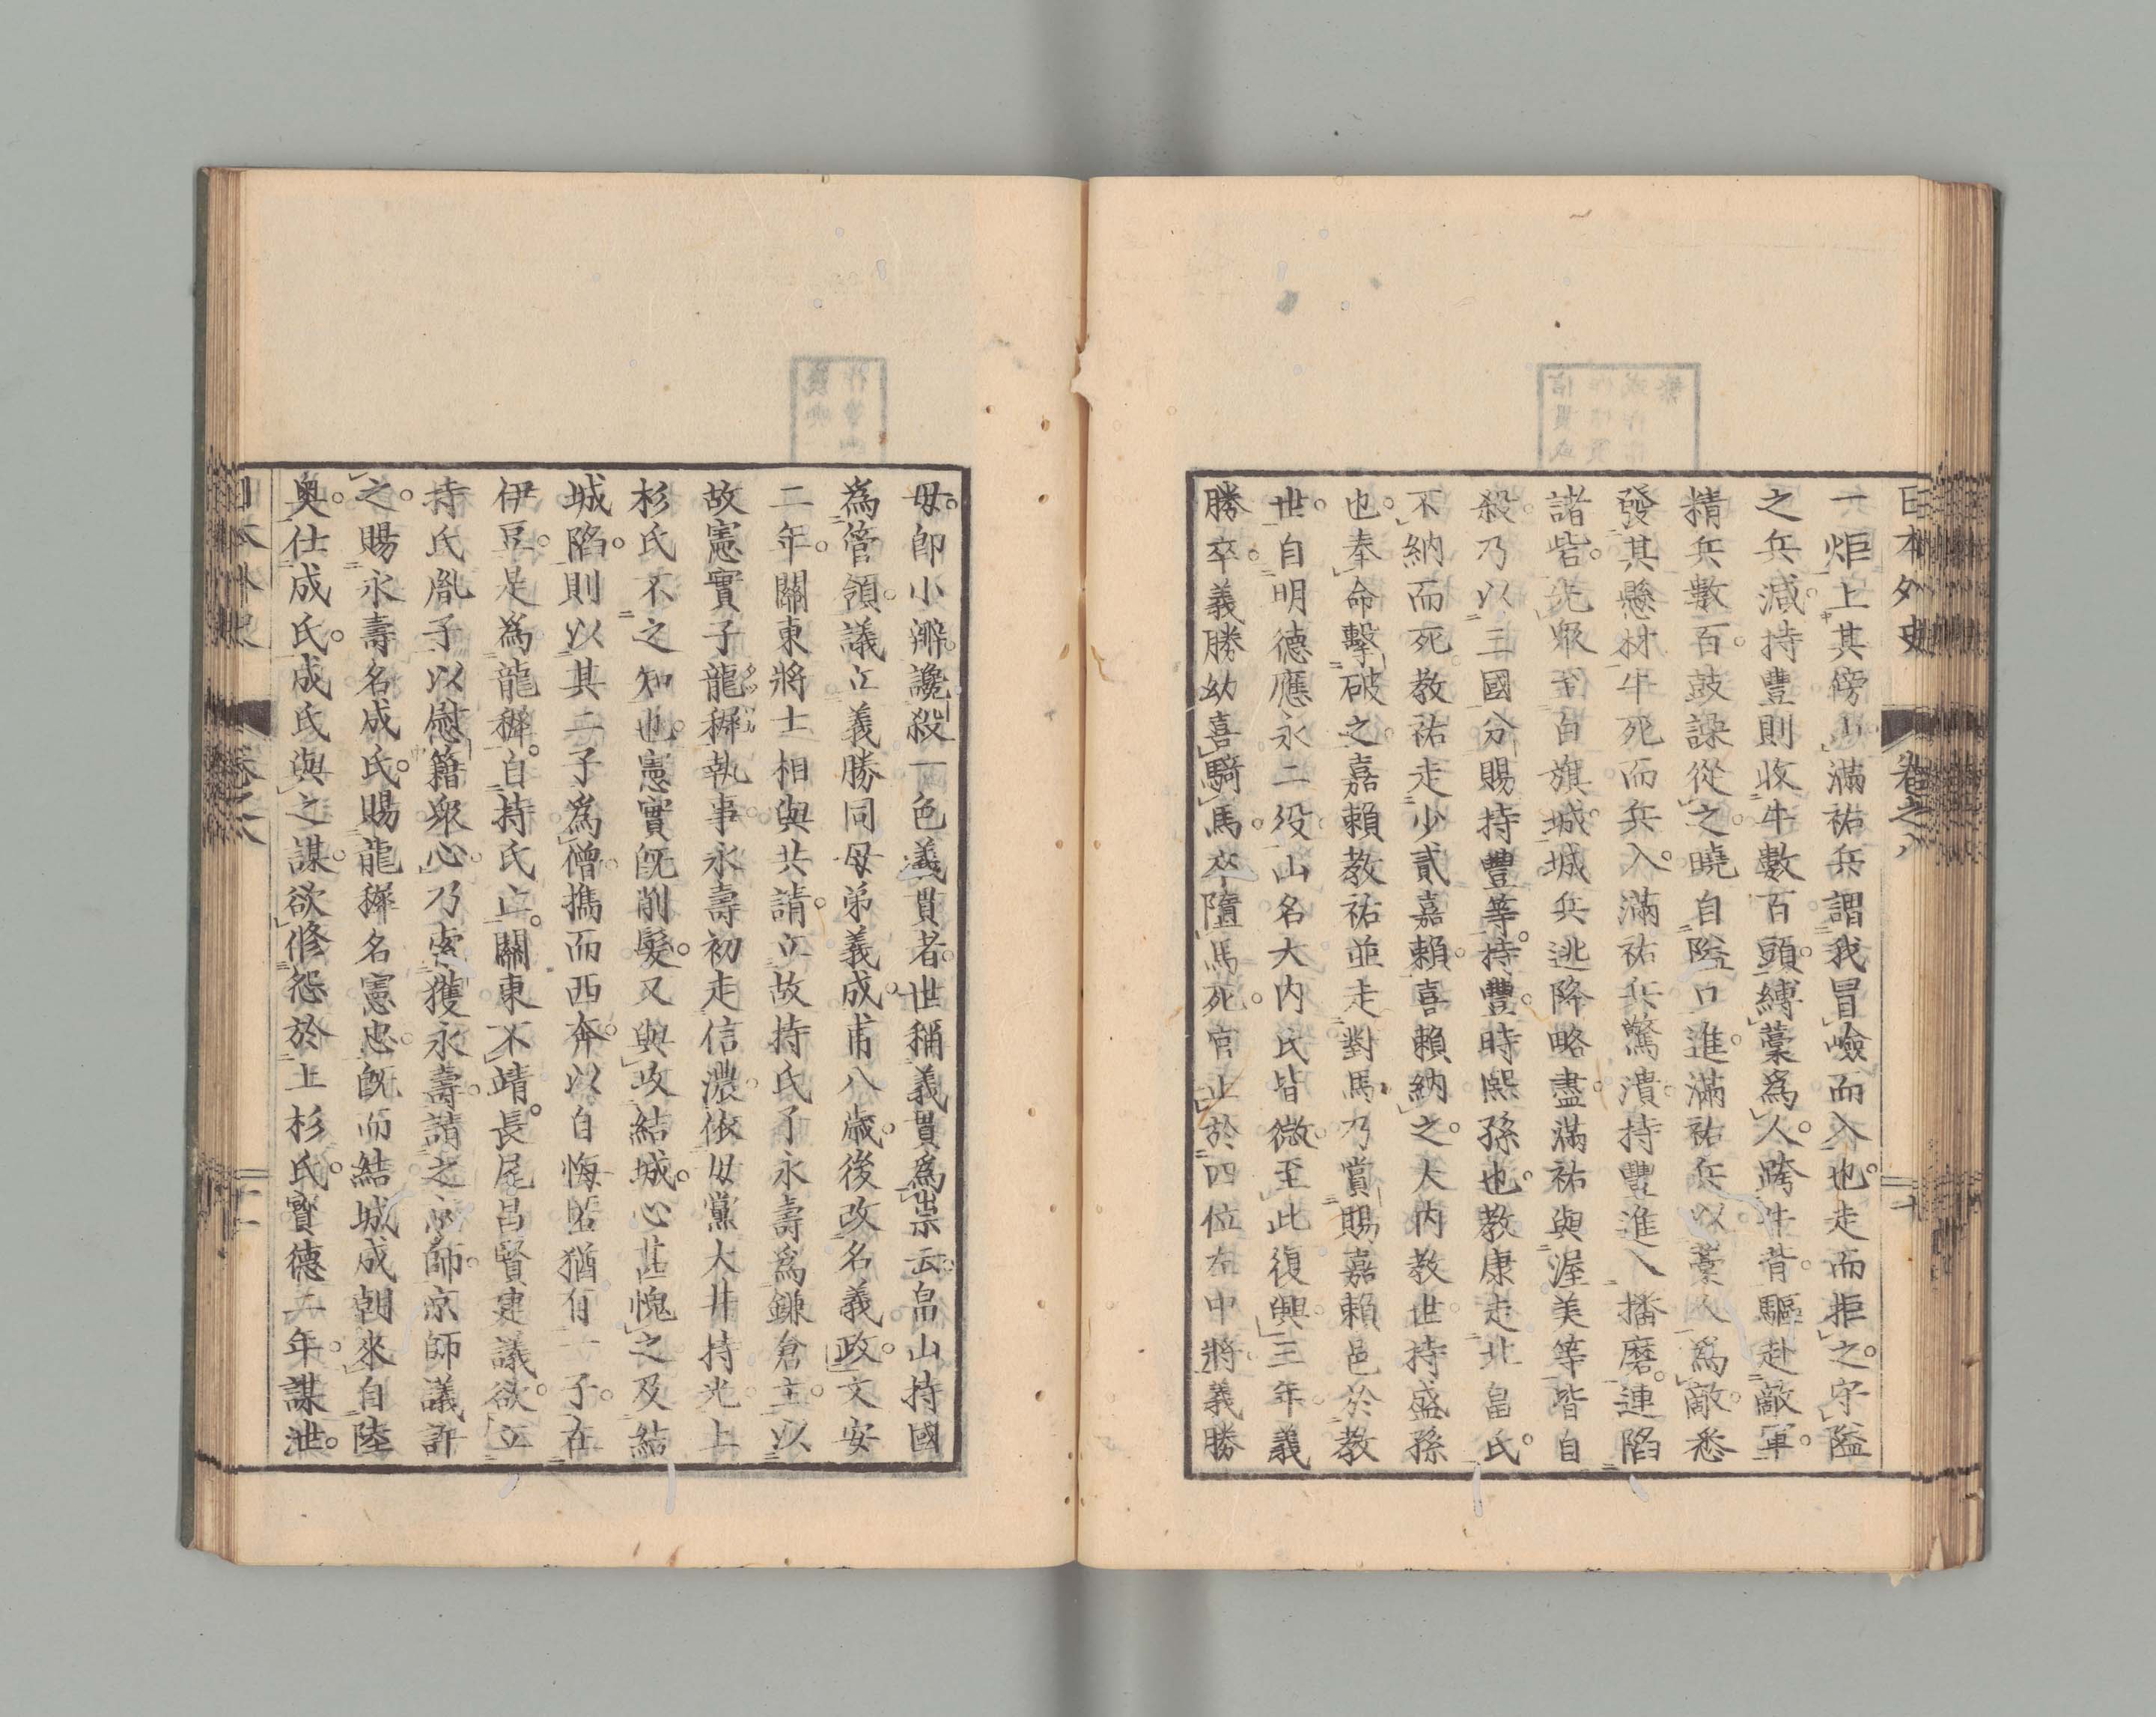 日本外史 卷之八 十
一炬上其傍山滿祐兵謂我冒嶮而入也走而拒之守隘
之兵減持豐則收牛數百頭縛藁爲人跨牛背驅赴敵軍
精兵數百鼓譟從之曉自隘口進滿祐兵以藁人爲敵悉
發其懸材牛死而兵入滿祐兵驚潰持豐進入播磨連陷
諸砦先衆至白旗城城兵逃降略盡滿祐與渥美等皆自
殺乃以三國分賜持豐等持豐時熈孫也教康走北畠氏
不納而死教祐走少貳嘉賴喜賴納之大内教世持盛孫
也奉命擊破之嘉賴教祐並走對馬乃賞賜嘉賴邑於教
世自明德應永二役山名大内氏皆微至此復興三年義
勝卒義勝幼喜騎馬卒墮馬死官止於四位左中將義勝
母卽小辨讒殺一色義貫者世稱義貫爲祟云畠山持國
爲管領議立義勝同母弟義成甫八歳後改名義政文安
二年關東將士相與共請立故持氏子永壽爲鎌倉主以
故憲實子龍穉執事永壽初走信濃依母黨大井持光上
杉氏不之知也憲實既削髮又與攻結城心甚愧之及結
城陷則以其二子爲僧携而西奔以自悔匿猶有一子在
伊豆是爲龍穉自持氏亡關東不靖長尾昌賢建議欲立
持氏胤子以慰藉衆心乃索獲永壽請之京師京師議許
之賜永壽名成氏賜龍穉名憲忠既而結城成朝來自陸
奥仕成氏成氏與之謀欲修怨於上杉氏寳德二年謀泄
日本外史 卷之八